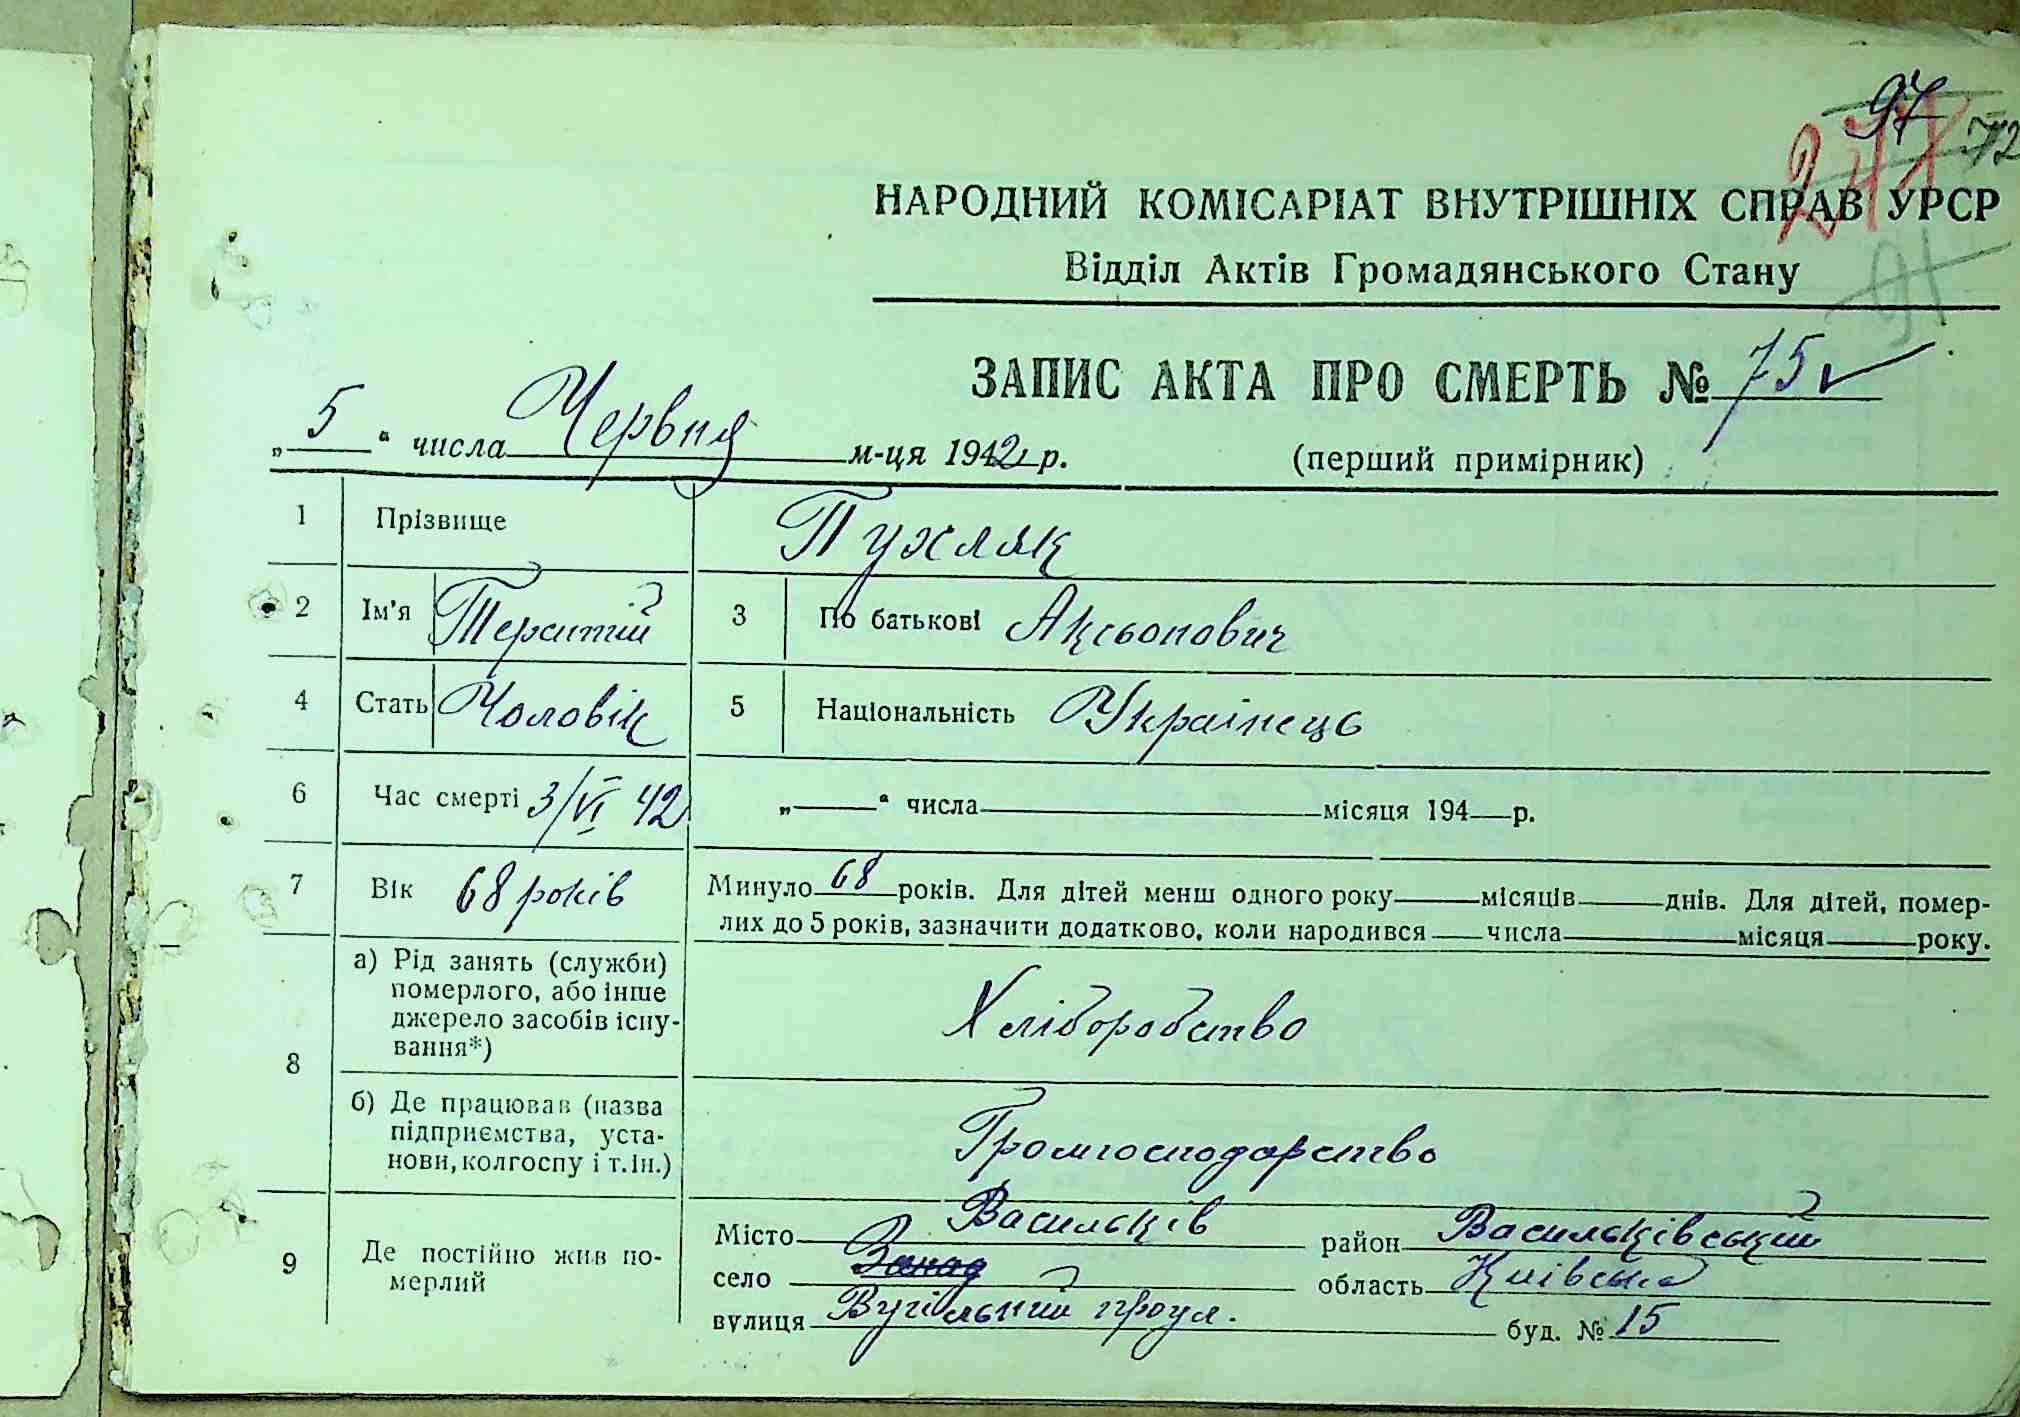 97
НАРОДНИЙ КОМІСАРІАТ ВНУТРІШНІХ СПРАВ УРСР
Відділ Актів Громадянського Стану
91
ЗАПИС АКТА ПРО СМЕРТЬ № 75
„ 5 “ числа Червня м-ця 1942 р.
(перший примірник)
1 Прізвище Пухляк
2 Ім'я Терентій 3 По батькові Аксьонович
4 Стать Чоловік 5 Національність Українець
6 Час смерті 3/VI 42 „ “ числа місяця 194 р.
7 Вік 68 років Минуло 68 років. Для дітей менш одного року місяців днів. Для дітей, помер-
лих до 5 років, зазначити додатково, коли народився числа місяця року.
8 а) Рід занять (служби)
померлого, або інше
джерело засобів існу-
вання*)
Хліборобство
б) Де працював (назва
підприємства, уста-
нови, колгоспу і т.ін.)
Громгосподарство
9 Де постійно жив по-
мерлий
Місто Васильків район Васильківський
село область Київська
вулиця Вугільний проул. буд. № 15